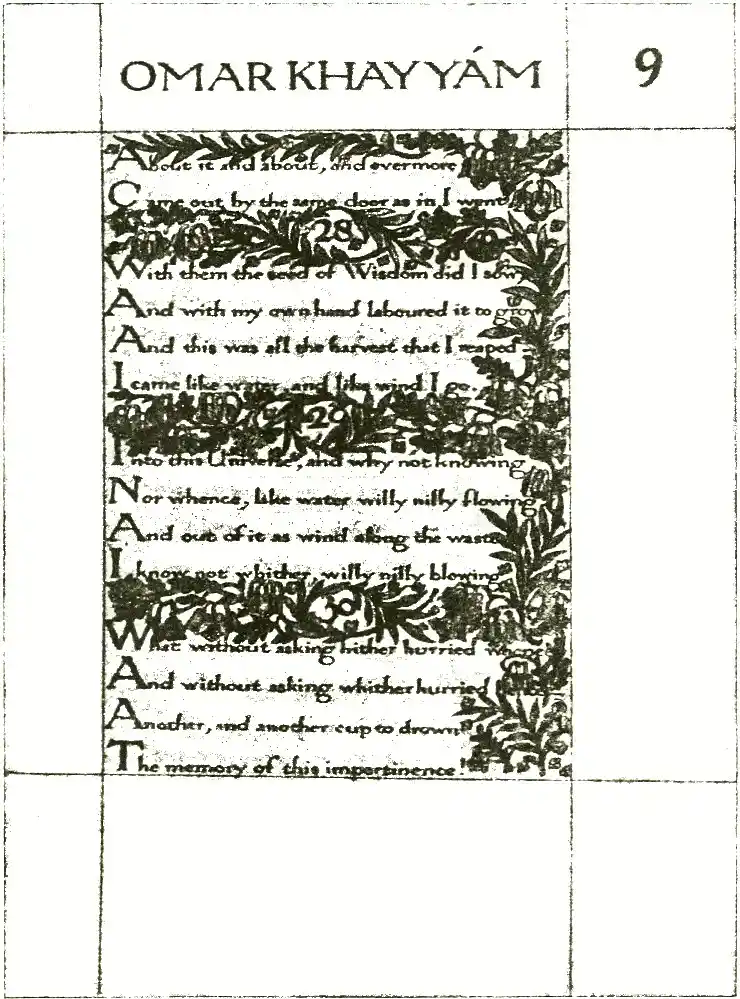 OMAR KHAYYÁM
9
About it and about, and evermore
Came out by the same door as in I went
28
With them the seed of Wisdom did I sow
And with my own hand laboured it to grow
And this was all the harvest that I reaped
I came like water, and like wind I go.
29
Into this Universe, and why not knowing
Nor whence, like water willy nilly flowing
And out of it as wind along the waste
I know not whither, willy nilly blowing
30
What without asking hither hurried whence
And without asking whither hurried
Another, and another cup to drown
The memory of this impertinence!